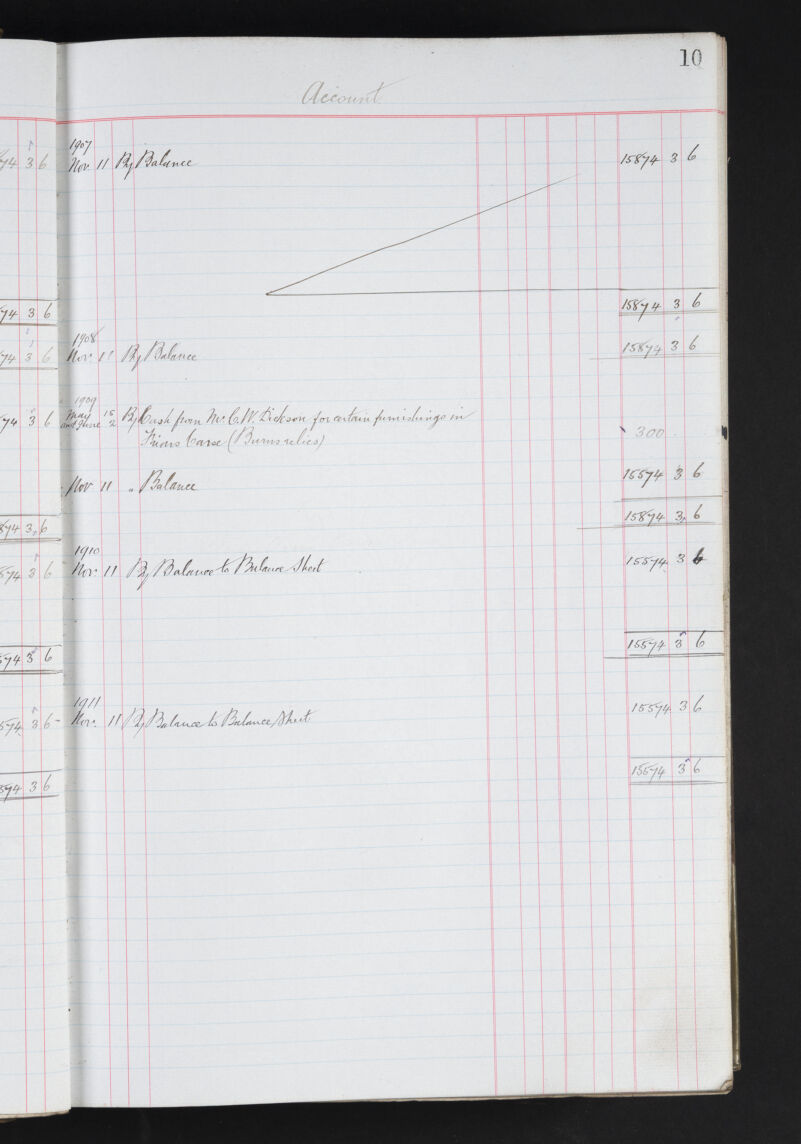 10
Account
1907
Nov. 11 By Balance 15874 3 6
15874 3 6
1908
Nov. 11 By Balance 15874 3 6
1909
May 15 By Cash from Mr. C. W. Dickson for certain furnishings in
and June 2 Friars Carse (Burns relics) 300
Nov 11 " Balance 15574 3 6
15874 3 6
1910
Nov. 11 By Balance to Balance Sheet 15574 3 6
15574 3 6
1911
Nov. 11 By Balance to Balance Sheet 15574 3 6
15574 3 6
74 3 6
74 3 6
74 3 6
74 3 6
874 3 6
574 3 6
574 3 6
574 3 6
574 3 6